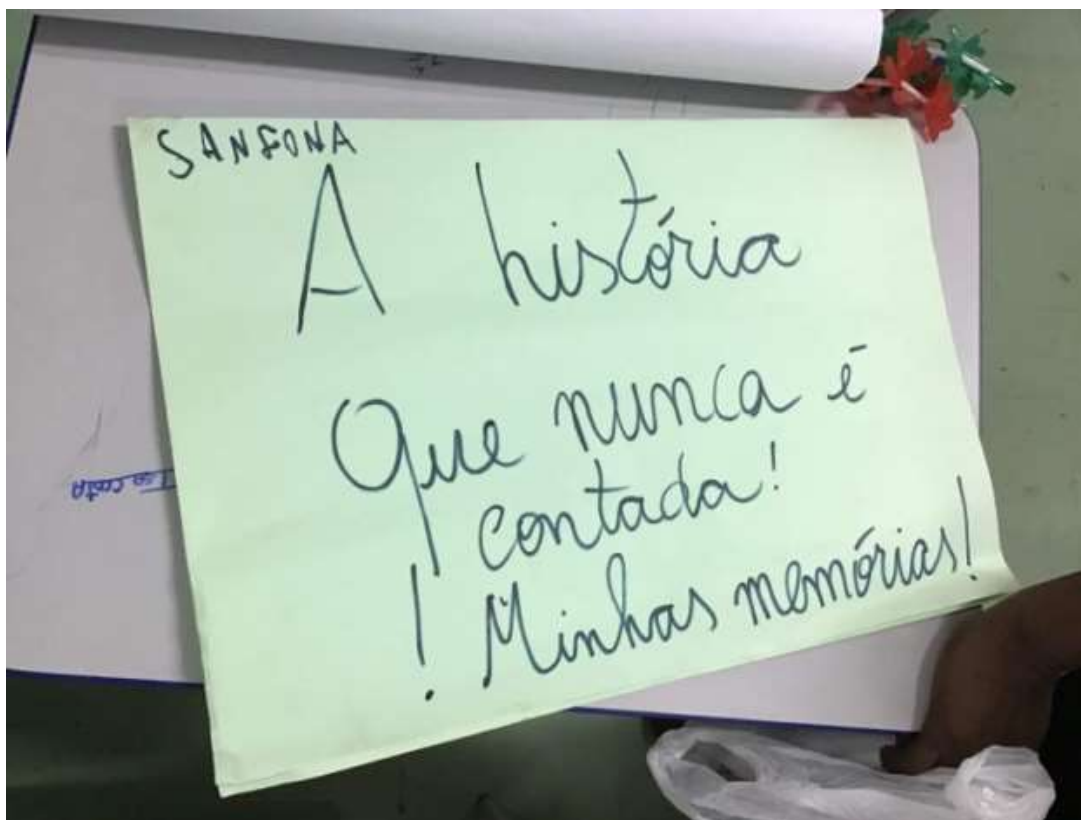 SANFONA
A história
Que nunca é
contada!
! Minhas memórias!